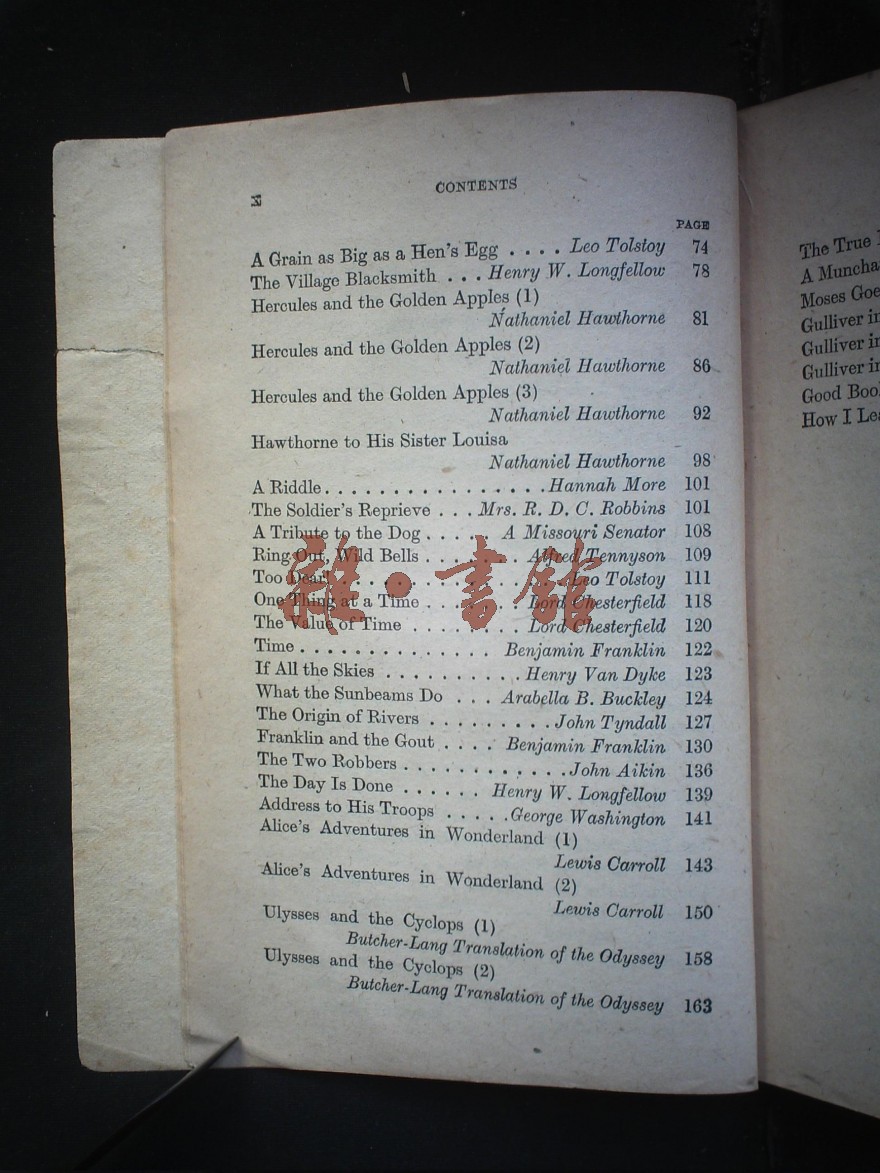 x
CONTENTS
PAGE
A Grain as Big as a Hen's Egg . . . . Leo Tolstoy 74
The Village Blacksmith . . . Henry W. Longfellow 78
Hercules and the Golden Apples (1)
Nathaniel Hawthorne 81
Hercules and the Golden Apples (2)
Nathaniel Hawthorne 86
Hercules and the Golden Apples (3)
Nathaniel Hawthorne 92
Hawthorne to His Sister Louisa
Nathaniel Hawthorne 98
A Riddle . . . . . . . . . . . . . . . . Hannah More 101
The Soldier's Reprieve . . . Mrs. R. D. C. Robbins 101
A Tribute to the Dog . . . . A Missouri Senator 108
Ring Out, Wild Bells . . . . . . . Alfred Tennyson 109
Too Dear! . . . . . . . . . . . . . . . Leo Tolstoy 111
One Thing at a Time . . . . . . . Lord Chesterfield 118
The Value of Time . . . . . . . . Lord Chesterfield 120
Time . . . . . . . . . . . . . . Benjamin Franklin 122
If All the Skies . . . . . . . . . . Henry Van Dyke 123
What the Sunbeams Do . . . Arabella B. Buckley 124
The Origin of Rivers . . . . . . . . . John Tyndall 127
Franklin and the Gout . . . . Benjamin Franklin 130
The Two Robbers . . . . . . . . . . . . John Aikin 136
The Day Is Done . . . . . . Henry W. Longfellow 139
Address to His Troops . . . . . George Washington 141
Alice's Adventures in Wonderland (1)
Lewis Carroll 143
Alice's Adventures in Wonderland (2)
Lewis Carroll 150
Ulysses and the Cyclops (1)
Butcher-Lang Translation of the Odyssey 158
Ulysses and the Cyclops (2)
Butcher-Lang Translation of the Odyssey 163
The True
A Muncha
Moses Goe
Gulliver in
Gulliver in
Gulliver in
Good Boo
How I Lea
雜·書館